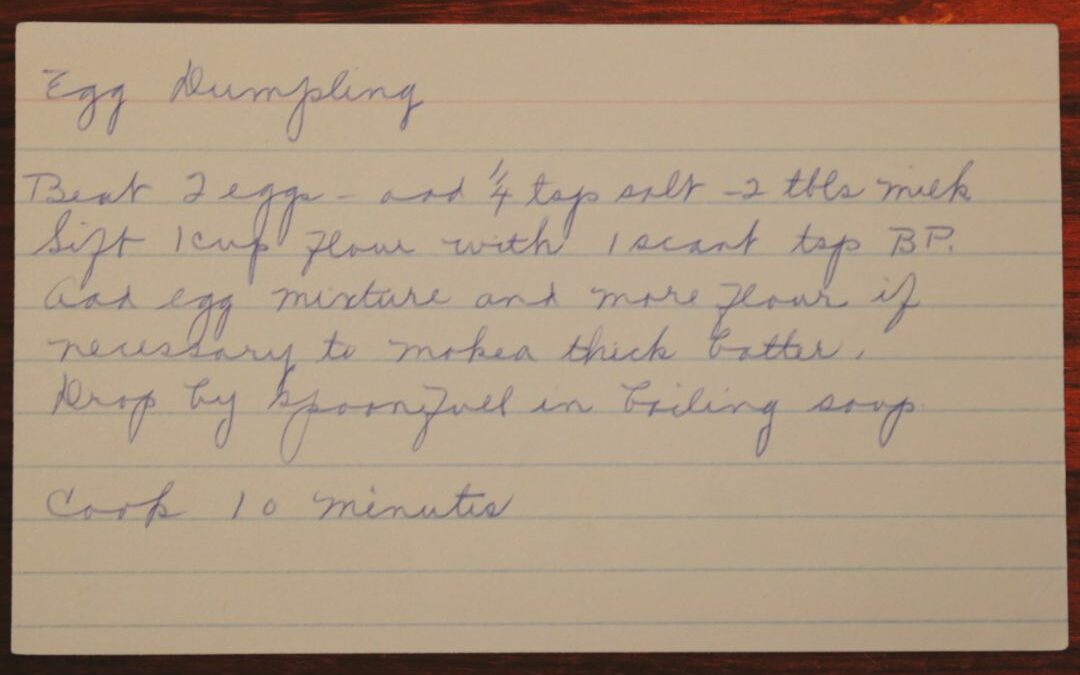 Egg Dumpling
Beat 2 eggs - add 1/4 tsp salt - 2 tbls milk
Sift 1 cup flour with 1 scant tsp BP.
Add egg mixture and more flour if
necessary to make a thick batter.
Drop by spoonfuel in boiling soup
Cook 10 minutes